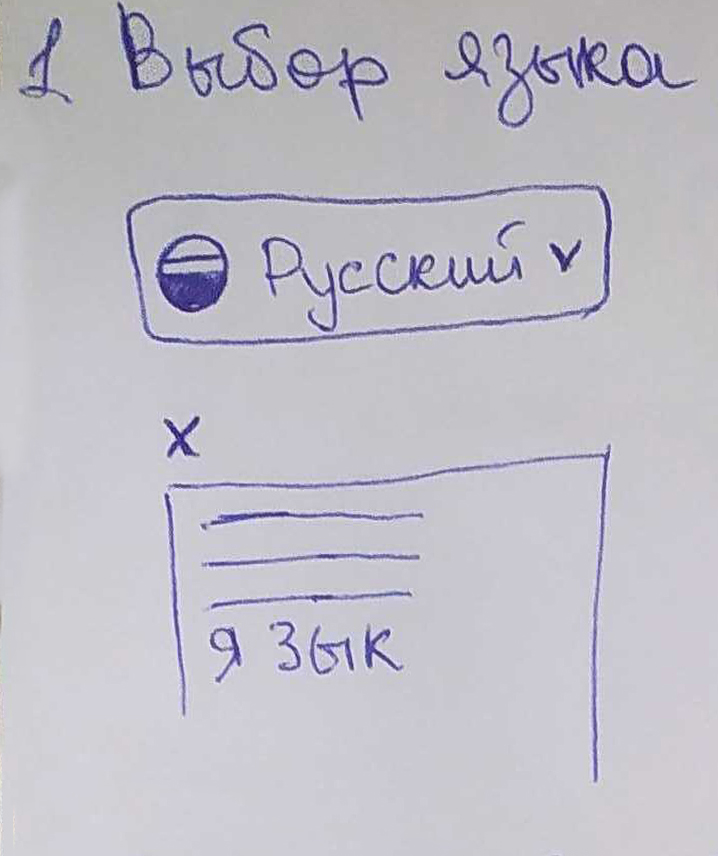 1 Выбор языка
Русский v
x
язык